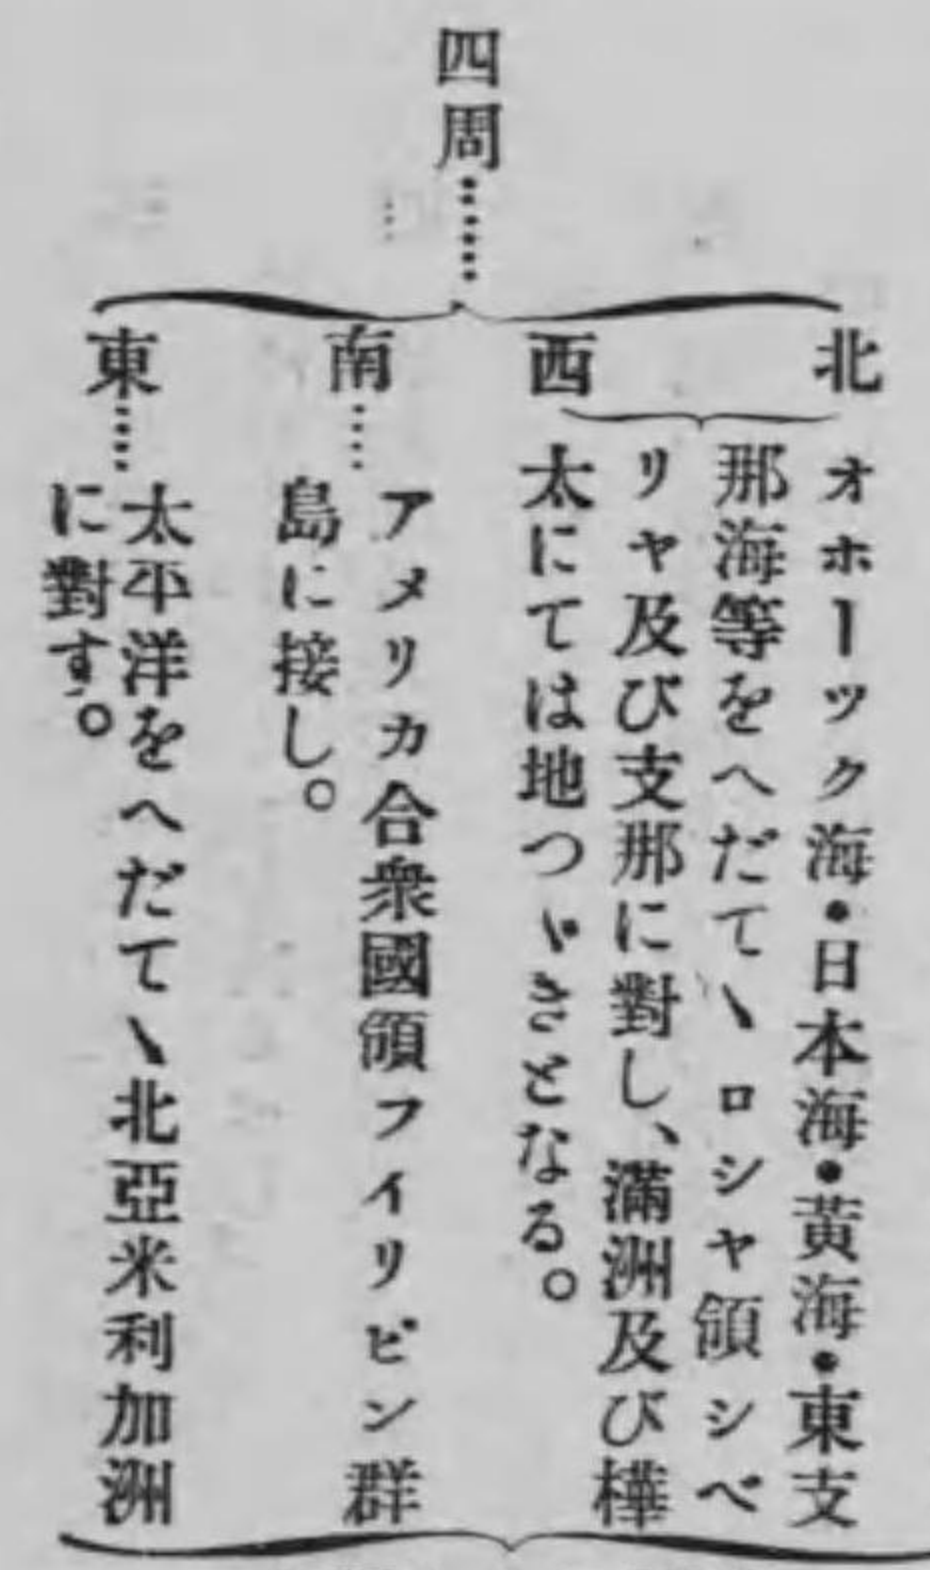 四周……
北
西
オホーツク海・日本海・黄海・東支
那海等をへだてゝロシヤ領シベ
リヤ及び支那に對し、滿洲及び樺
太にては地つゞきとなる。
南……
アメリカ合衆國領フイリピン群
島に接し。
東……
太平洋をへだてゝ北亞米利加洲
に對す。